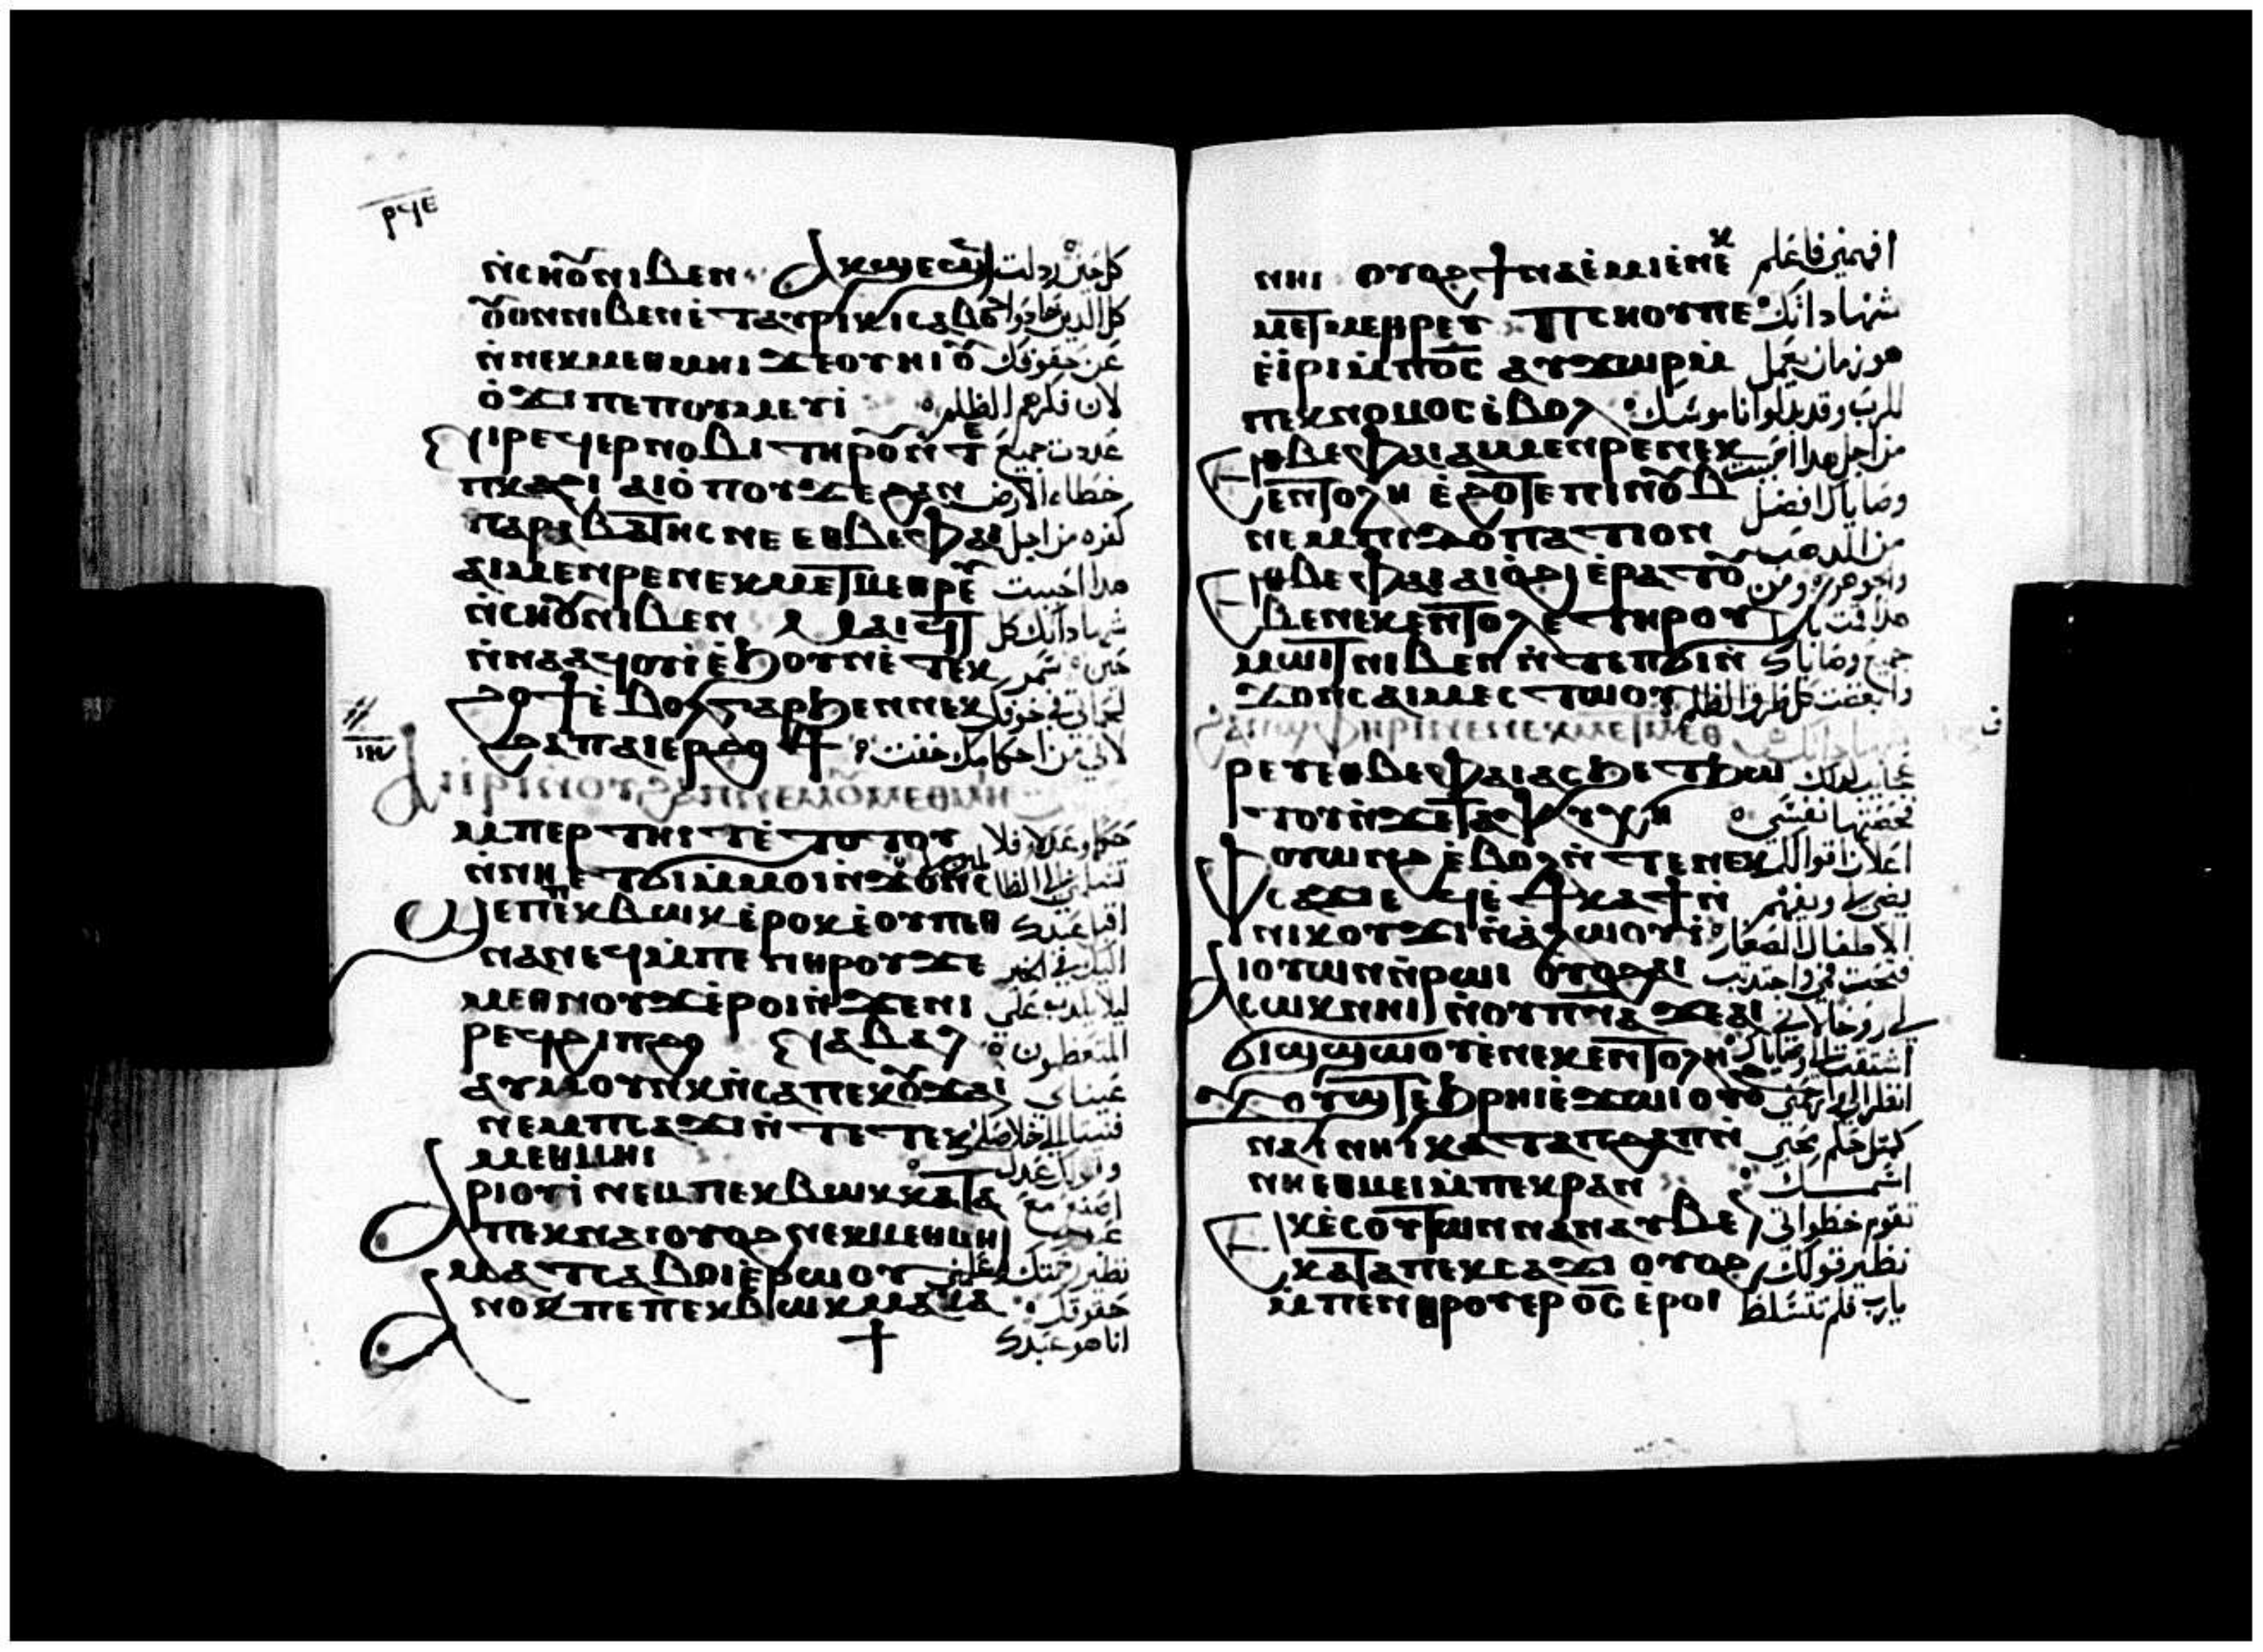 ⲣϥⲉ
ⲛ̀ⲥⲏⲟⲩⲛⲓⲃⲉⲛ ⲁⲕϣⲉϣϥ كل حين رذلت
ⲟⲩⲟⲛⲛⲓⲃⲉⲛⲉ̀ⲧⲁⲩⲣⲓⲕⲓⲥⲁⲃⲟⲗ كل الذين حادوا
ⲛ̀ⲛⲉⲕⲙⲉⲑⲙⲏⲓ ϫⲉⲟⲩⲛⲓ ⲟⲩ عن حقوقك
ⲟ̀ϫⲓ ⲡⲉⲡⲟⲩⲙⲉⲩⲓ لان فكرهم الظلم
ⲛⲓⲣⲉϥⲉⲣⲛⲟⲃⲓ ⲧⲏⲣⲟⲩ ⲛ̀ⲧⲉ عددت جميع
ⲡⲕⲁϩⲓ ⲁⲓⲟ̀ⲡⲟⲩ ϫⲉ ϩⲁⲛ خطاه الارض
ⲡⲁⲣⲁⲃⲁⲧⲏⲥ ⲛⲉ ⲉⲑⲃⲉⲫⲁⲓ كفره من اجل
ⲁⲓⲙⲉⲛⲣⲉ ⲛⲉⲕⲙⲉⲧⲙⲉⲑⲣⲉⲩ هذا احببت
ⲛ̀ⲥⲏⲟⲩⲛⲓⲃⲉⲛ ⲙⲁⲓϥⲧ شهاداتك كل
ⲛ̀ⲛⲁⲁϥⲟⲩⲓ̀ ⲉ̀ϧⲟⲩⲛ ⲉ̀ⲧⲉⲕ حين سمر
ϩⲟϯ ⲉ̀ⲃⲟⲗ ⲅⲁⲣ ϧⲉⲛ ⲛⲉⲕ لحماني في خوفك
ϩⲁⲡ ⲁⲓⲉⲣϩⲟϯ لاني من احكامك خفت
ⲁⲓⲓⲣⲓ ⲛ̀ⲟⲩϩⲁⲡ ⲛⲉⲙ ⲟⲩⲙⲉⲑⲙⲏⲓ
ⲙ̀ⲡⲉⲣⲧⲏⲓⲧ ⲉ̀ⲧⲟⲧⲟⲩ حكما وعدلا فلا
ⲛ̀ⲛⲏ ⲉⲧϭⲓ ⲙ̀ⲙⲟⲓ ⲛ̀ϫⲟⲛⲥ تسلمني الى الظالمين
ϣⲉⲡ ⲡⲉⲕⲃⲱⲕ ⲉ̀ⲣⲟⲕ ⲉ̀ⲟⲩⲡⲉⲑ اقبل عبدك
ⲛⲁⲛⲉϥ ⲙ̀ⲡⲉⲛⲑⲣⲟⲩϫⲉ اليك في الخير
ⲙⲉⲑⲛⲟⲩϫ ⲉ̀ⲣⲟⲓ ⲛ̀ϫⲉⲛⲓ ليلا يكذب على
ⲣⲉϥϩⲓⲡϩⲟ ⲛⲁⲃⲁⲗ المتعظمون
ⲁⲩⲙⲟⲩⲛⲕ ⲛ̀ⲥⲁ ⲡⲉⲕⲟⲩϫⲁⲓ عيناي
ⲛⲉⲙ ⲡⲥⲁϫⲓ ⲛ̀ⲧⲉ ⲧⲉⲕ فنيتا الى خلاصك
ⲙⲉⲑⲙⲏⲓ وقولك عدلك
ⲁⲣⲓⲟⲩⲓ̀ ⲛⲉⲙ ⲡⲉⲕⲃⲱⲕ ⲕⲁⲧⲁ اصنع مع
ⲡⲉⲕⲛⲁⲓ ⲟⲩⲟϩ ⲛⲉⲕⲙⲉⲑⲙⲏⲓ عبدك
ⲙⲁⲧⲥⲁⲃⲟⲓ ⲉ̀ⲣⲱⲟⲩ نظير رحمتك علمني
ⲁⲛⲟⲕ ⲡⲉ ⲡⲉⲕⲃⲱⲕ ⲙⲁⲕⲁ حقوقك
انا هو عبدك
ⲛⲏⲓ ⲟⲩⲟϩ ϯⲛⲁⲉ̀ⲙⲓ ⲉ̀ⲛⲉⲕ افهمني فاعلم
ⲙⲉⲧⲙⲉⲑⲣⲉⲩ ⲡⲥⲏⲟⲩ ⲡⲉ شهاداتك
ⲉ̀ⲓⲣⲓ ⲙ̀ⲡⲟ̅ⲥ̅ ⲁⲩϫⲱⲣ ⲙ̀ هو زمان يعمل
ⲡⲉⲕⲛⲟⲙⲟⲥ ⲉ̀ⲃⲟⲗ للرب وقد بددوا ناموسك
ⲉⲑⲃⲉⲫⲁⲓ ⲁⲓⲙⲉⲛⲣⲉ ⲛⲉⲕ من اجل هذا احببت
ⲉⲛⲧⲟⲗⲏ ⲉ̀ϩⲟⲧⲉ ⲡⲓⲛⲟⲩⲃ وصاياك افضل
ⲛⲉⲙ ⲡⲓⲧⲟⲡⲁⲍⲓⲟⲛ من الذهب
ⲉⲑⲃⲉⲫⲁⲓ ⲁⲓⲟ̀ϩⲓ ⲉ̀ⲣⲁⲧⲟⲩ والجوهر ومن
ⲃⲉ ⲛⲉⲕⲉⲛⲧⲟⲗⲏ ⲧⲏⲣⲟⲩ هذا قمت
ⲙⲱⲓⲧ ⲛⲓⲃⲉⲛ ⲛ̀ⲧⲉ ⲡϭⲓⲛ̀ جميع وصاياك
ϫⲟⲛⲥ ⲁⲓⲙⲉⲥⲧⲱⲟⲩ وابغضت كل طرق الظلم
ϩⲁⲛϣⲫⲏⲣⲓ ⲛⲉ ⲛⲉⲕⲙⲉⲧⲙⲉⲑ
ⲣⲉⲩ ⲉⲑⲃⲉⲫⲁⲓ ⲁⲥϧⲉⲧϧⲱ عجايب لذلك
ⲧⲟⲩ ⲛ̀ϫⲉ ⲧⲁⲯⲩⲭⲏ فحصتها نفسي
ⲫⲟⲩⲱⲛϩ ⲉ̀ⲃⲟⲗ ⲛ̀ⲧⲉ ⲛⲉⲕ اعلان اقوالك
ⲥⲁϫⲓ ⲉϥⲉ̀ ⲕⲁϯ ⲛ̀ يضي لي ويفهم
ⲛⲓⲕⲟⲩϫⲓ ⲛ̀ⲁ̀ⲗⲱⲟⲩⲓ̀ الاطفال الصغار
ⲁⲓⲟⲩⲱⲛ ⲛ̀ⲣⲱⲓ ⲟⲩⲟϩ ⲁⲓ فتحت في واجتذبت
ⲥⲱⲕ ⲛⲏⲓ ⲛ̀ⲟⲩⲡ̅ⲛ̅ⲁ̅ ϫⲉ ⲁⲓ لي روحا لاني
ϭⲓϣϣⲱⲟⲩ ⲉ̀ⲛⲉⲕⲉⲛⲧⲟⲗⲏ اشتقت الى وصاياك
ϫⲟⲩϣⲧ ⲉ̀ϧⲣⲏⲓ ⲉ̀ϫⲱⲓ ⲟⲩⲟϩ انظر الي وارحمني
ⲛⲁⲓ ⲛⲏⲓ ⲕⲁⲧⲁ ⲡϩⲁⲡ ⲛ̀ كمثل حكم محبي
ⲛⲏ ⲉⲑⲙⲉⲓ ⲙ̀ⲡⲉⲕⲣⲁⲛ اسمك
ⲉⲕⲉ̀ⲥⲟⲩⲧⲱⲛ ⲛⲁⲛⲁⲩⲃⲉ تقوم خطواتي
ⲕⲁⲧⲁ ⲡⲉⲕⲥⲁϫⲓ ⲟⲩⲟϩ نظير قولك
ⲙ̀ⲡⲉⲛⲑⲣⲟⲩⲉⲣ ⲟ̅ⲥ̅ ⲉ̀ⲣⲟⲓ يا رب فلم تتسلط